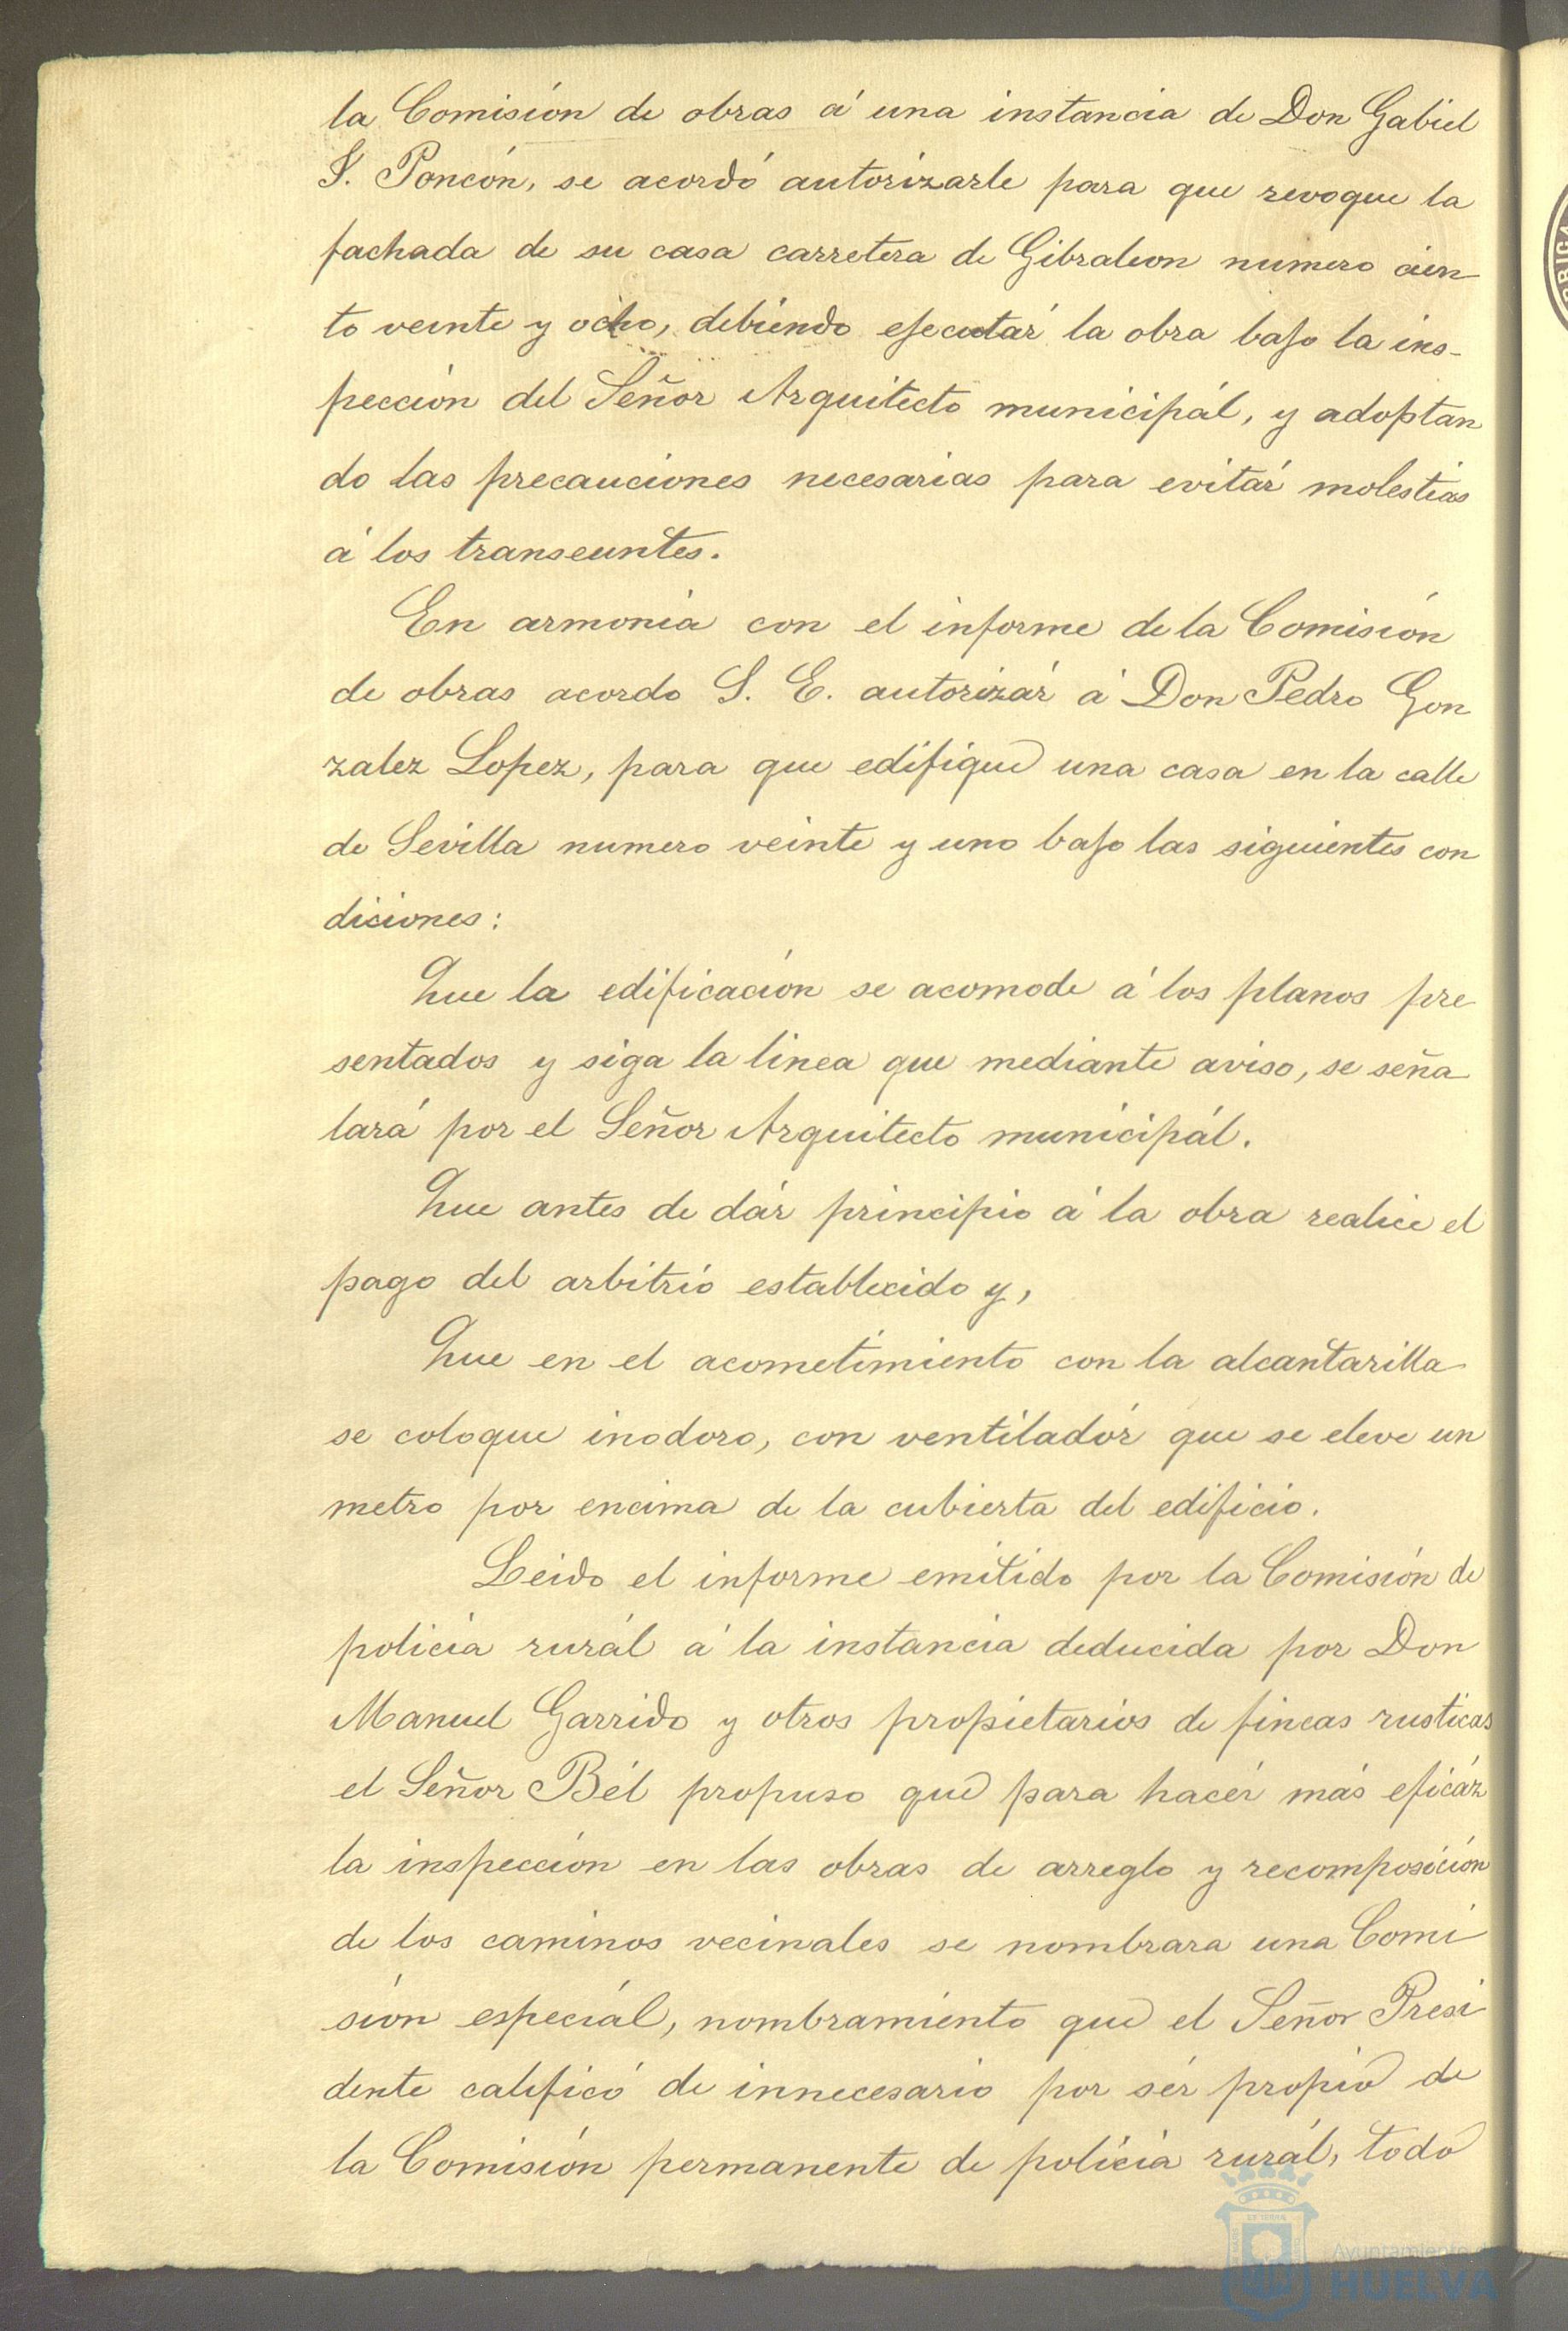 la Comisión de obras á una instancia de Don Gabiel
S. Poncón, se acordó autorizarle para que revoque la
fachada de su casa carretera de Gibraleon numero cien
to veinte y ocho, debiendo ejecutár la obra bajo la ins-
pección del Señor Arquitecto municipál, y adoptan
do las precauciones necesarias para evitár molestias
á los transeuntes.
En armonia con el informe de la Comisión
de obras acordo S. E. autorizár á Don Pedro Gon
zalez Lopez, para que edifique una casa en la calle
de Sevilla numero veinte y uno bajo las siguientes con
diciones:
Que la edificación se acomode á los planos pre
sentados y siga la linea que mediante aviso, se seña
lará por el Señor Arquitecto municipál.
Que antes de dár principio á la obra realice el
pago del arbitrio establecido y,
Que en el acometimiento con la alcantarilla
se coloque inodoro, con ventiladór que se eleve un
metro por encima de la cubierta del edificio.
Leido el informe emitido por la Comisión de
policia rurál á la instancia deducida por Don
Manuel Garrido y otros propietarios de fincas rusticas
el Señor Bél propuso que para hacér más eficáz
la inspección en las obras de arreglo y recomposición
de los caminos vecinales se nombrara una Comi
sión especiál, nombramiento que el Señor Presi
dente calificó de innecesario por sér propio de
la Comisión permanente de policia rurál, todo
Ayuntamiento de
HUELVA